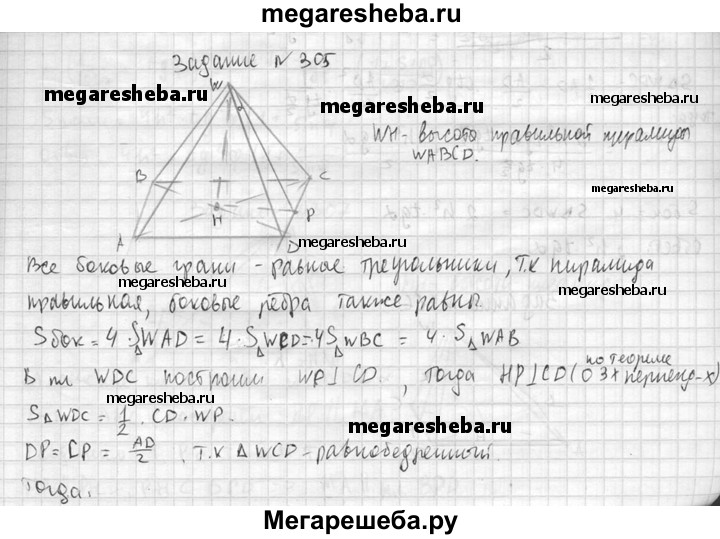 megaresheba.ru
Задание № 305
W
megaresheba.ru
megaresheba.ru
megaresheba.ru
WH - высота правильной пирамиды
WABCD.
B
C
megaresheba.ru
H
P
A
D
megaresheba.ru
Все боковые грани - равные треугольники, т.к пирамида
megaresheba.ru
megaresheba.ru
правильная, боковые рёбра также равны.
Sбок = 4·S△WAD = 4·S△WCD = 4S△WBC = 4·S△WAB
В пл WDC построим WP⊥CD, тогда HP⊥CD (по теореме
о 3х перпенд-х)
megaresheba.ru
S△WDC = 1/2 · CD · WP.
megaresheba.ru
DP = CP = AD/2, т.к △WCD - равнобедренный.
Тогда.
Мегарешеба.ру